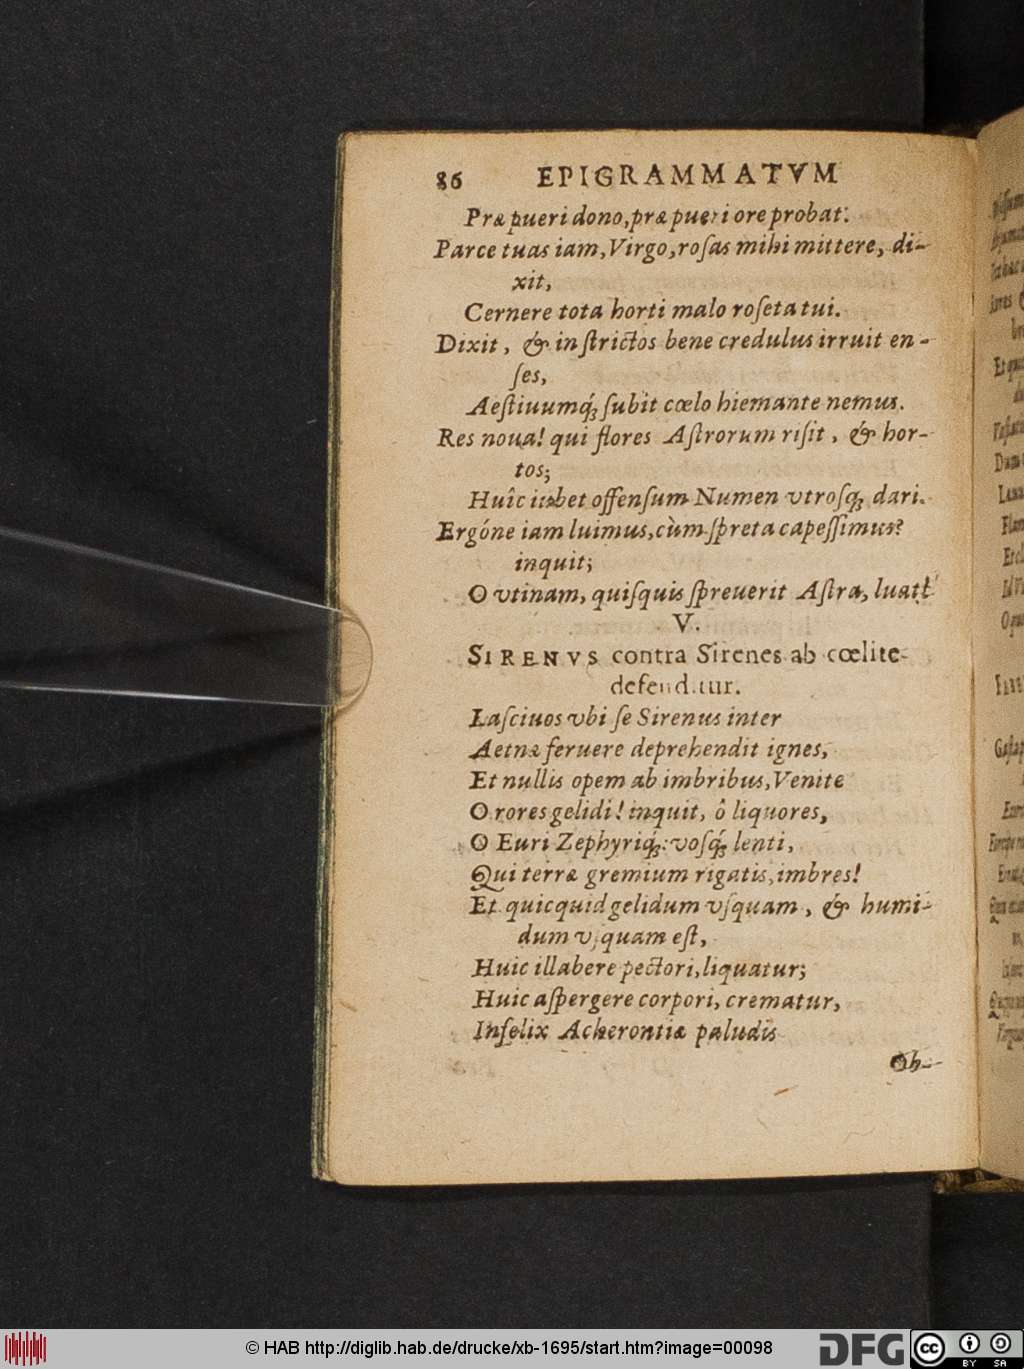 86 EPIGRAMMATVM
Præ pueri dono, præ pueri ore probat.
Parce tuas iam, Virgo, roſas mihi mittere, di-
xit,
Cernere tota horti malo roſeta tui.
Dixit, & inſtrictos bene credulus irruit en-
ſes,
Aeſtiuumq́; ſubit cœlo hiemante nemus.
Res noua! qui flores Aſtrorum riſit, & hor-
tos;
Huîc iubet offenſum Numen vtroſq; dari.
Ergóne iam luimus, cùm ſpreta capeſſimus?
inquit;
O vtinam, quiſquis ſpreuerit Aſtra, luat!
V.
SIRENVS contra Sirenes ab cœlite
defenditur.
Laſciuos vbi ſe Sirenus inter
Aetnæ feruere deprehendit ignes,
Et nullis opem ab imbribus, Venite
O rores gelidi! inquit, ô liquores,
O Euri Zephyriq́; voſq́; lenti,
Qui terræ gremium rigatis, imbres!
Et quicquid gelidum vſquam, & humi-
dum vſquam eſt,
Huic illabere pectori, liquatur;
Huic aſpergere corpori, crematur,
Infelix Acherontiæ paludis
Ob-
© HAB http://diglib.hab.de/drucke/xb-1695/start.htm?image=00098
DFG
cc
BY SA